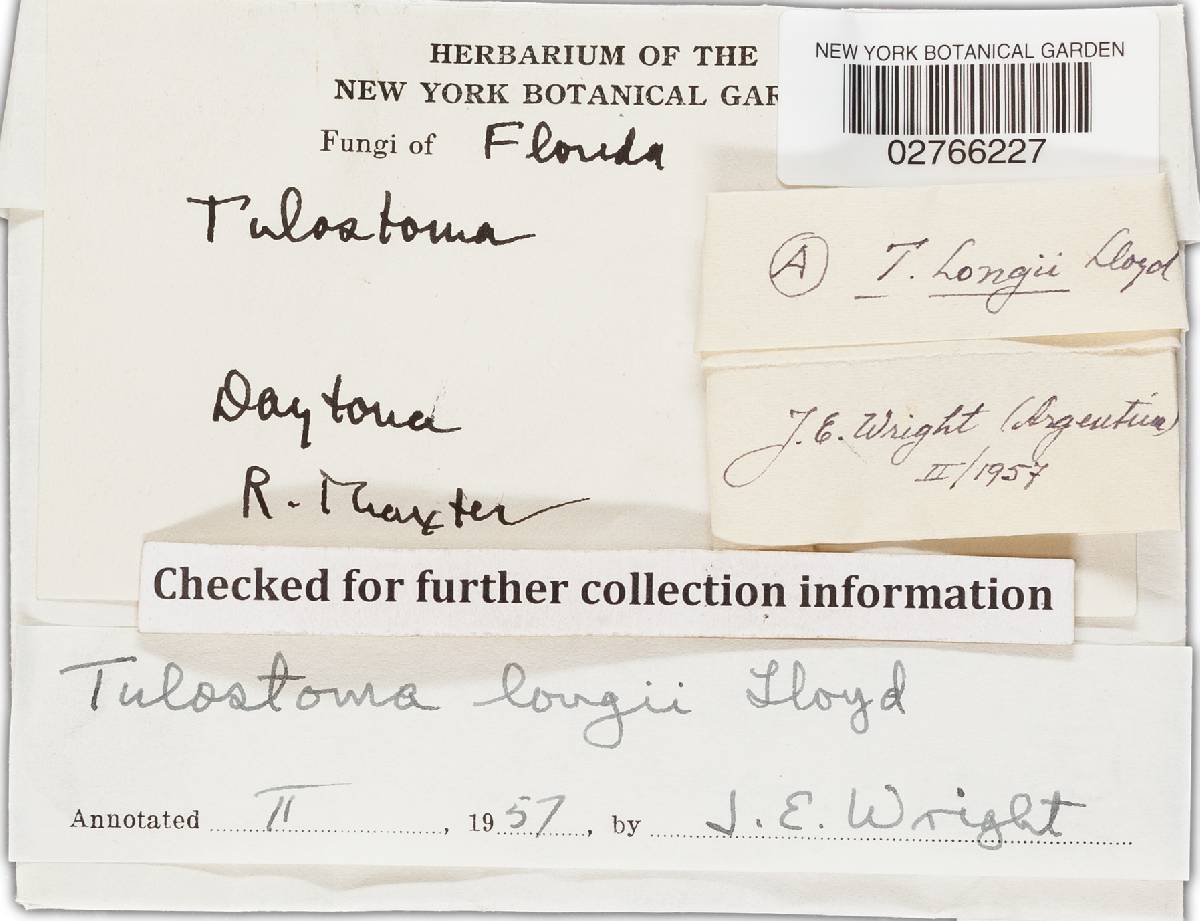 HERBARIUM OF THE
NEW YORK BOTANICAL GAR
Fungi of Florida
Tulostoma
Daytona
R. Thaxter
NEW YORK BOTANICAL GARDEN
02766227
A T. Longii Lloyd
J. E. Wright (Argentina)
II/1957
Checked for further collection information
Tulostoma longii Lloyd
Annotated II, 1957, by J. E. Wright